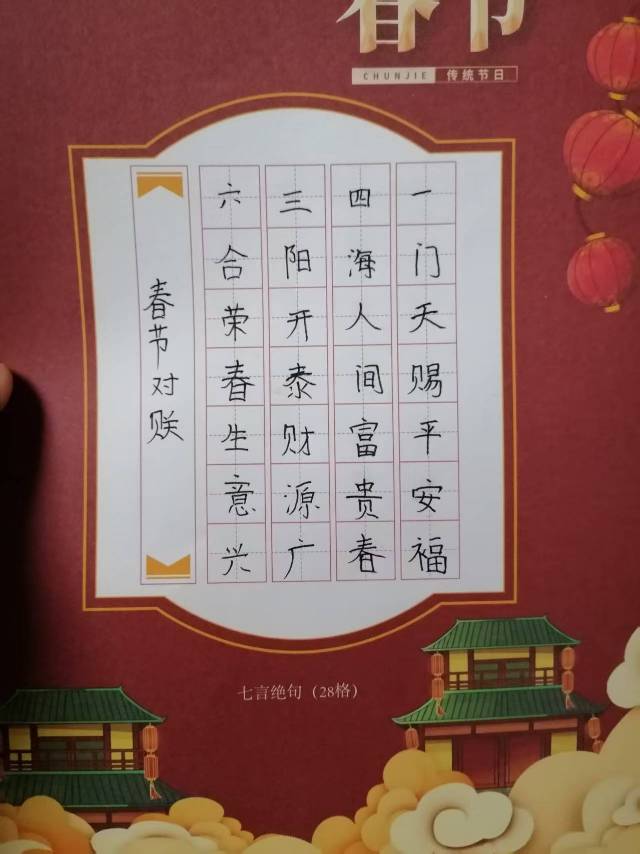 春节
CHUNJIE 传统节日
一门天赐平安福
四海人间富贵春
三阳开泰财源广
六合荣春生意兴
春节对联
七言绝句（28格）